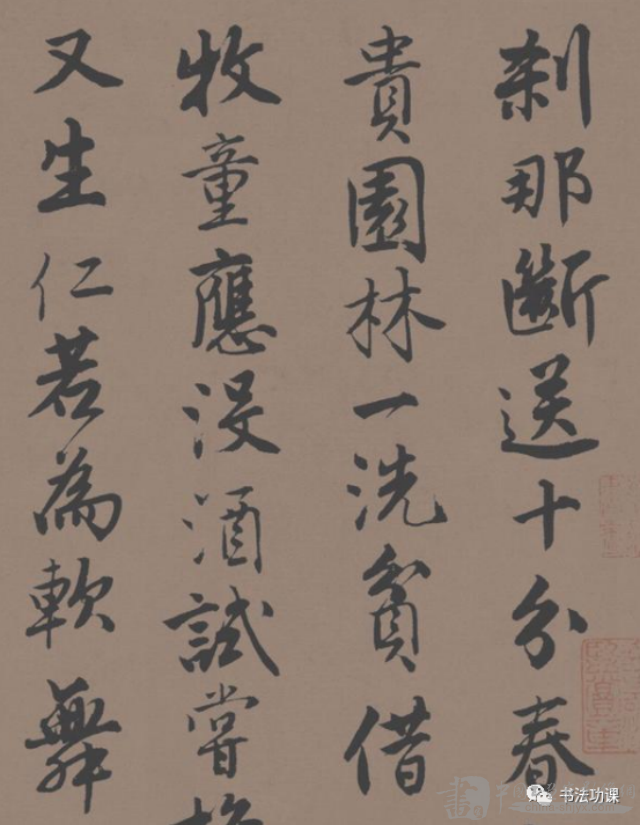 刹那斷送十分春
貴園林一洗貧借
牧童應沒酒試嘗
又生仁若為軟舞
书法功课